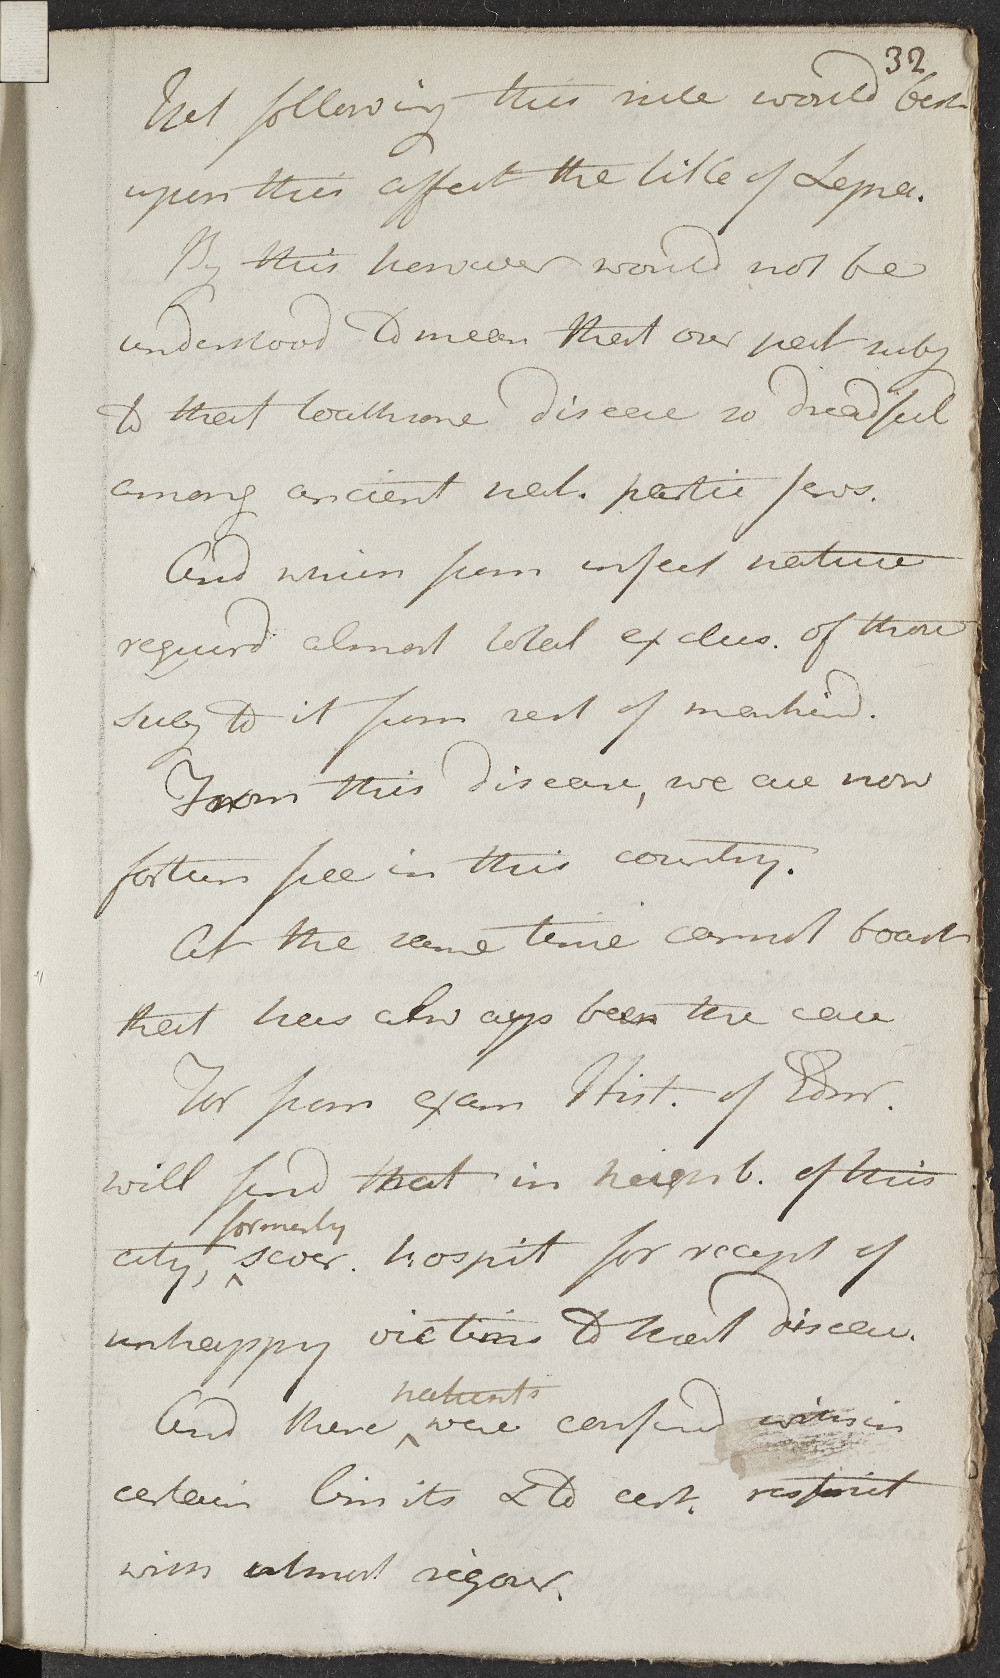 32
Yet following this rule would best.
upon this affect the title of Lepra.
By this however would not be
understood to mean that our pat subj
to that loathsome disease so dreadful
among ancient nat. partic Jews.
And which from infect nature
requird almost total exclus. of those
subj to it from rest of mankind.
From this disease, we are now
fortun free in this country.
At the same time cannot boast
that has always been the case
For from exam Hist. of Edinr.
will find that in neighb. of this
city, formerly sever. hospit for recept of
unhappy victims to that disease.
And these patients were confind within
certain limits & to cert. restrict
with utmost rigour.